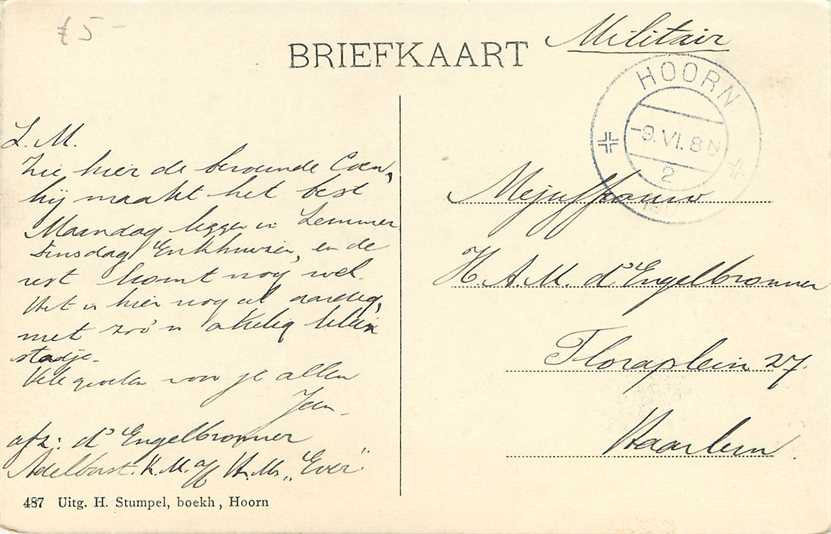 £5-
BRIEFKAART
Militair
HOORN
-9.VI.8N
2
L.M.
Zie hier de beroemde Coen,
hij maakt het best
Maandag leggen in Lemmer
Dinsdag Enkhuizen, en de
rest komt nog wel.
Het is hier nog al aardig,
met zoo'n akelig klein
stadje.
Vele groeten voor je allen
Jan
afz: d'Engelbronner
Adelborst. K.M. a/b H.M. "Ever"
487 Uitg. H. Stumpel, boekh, Hoorn
Mejuffrouw
H. A. M. d'Engelbronner
Floraplein 27.
Haarlem.